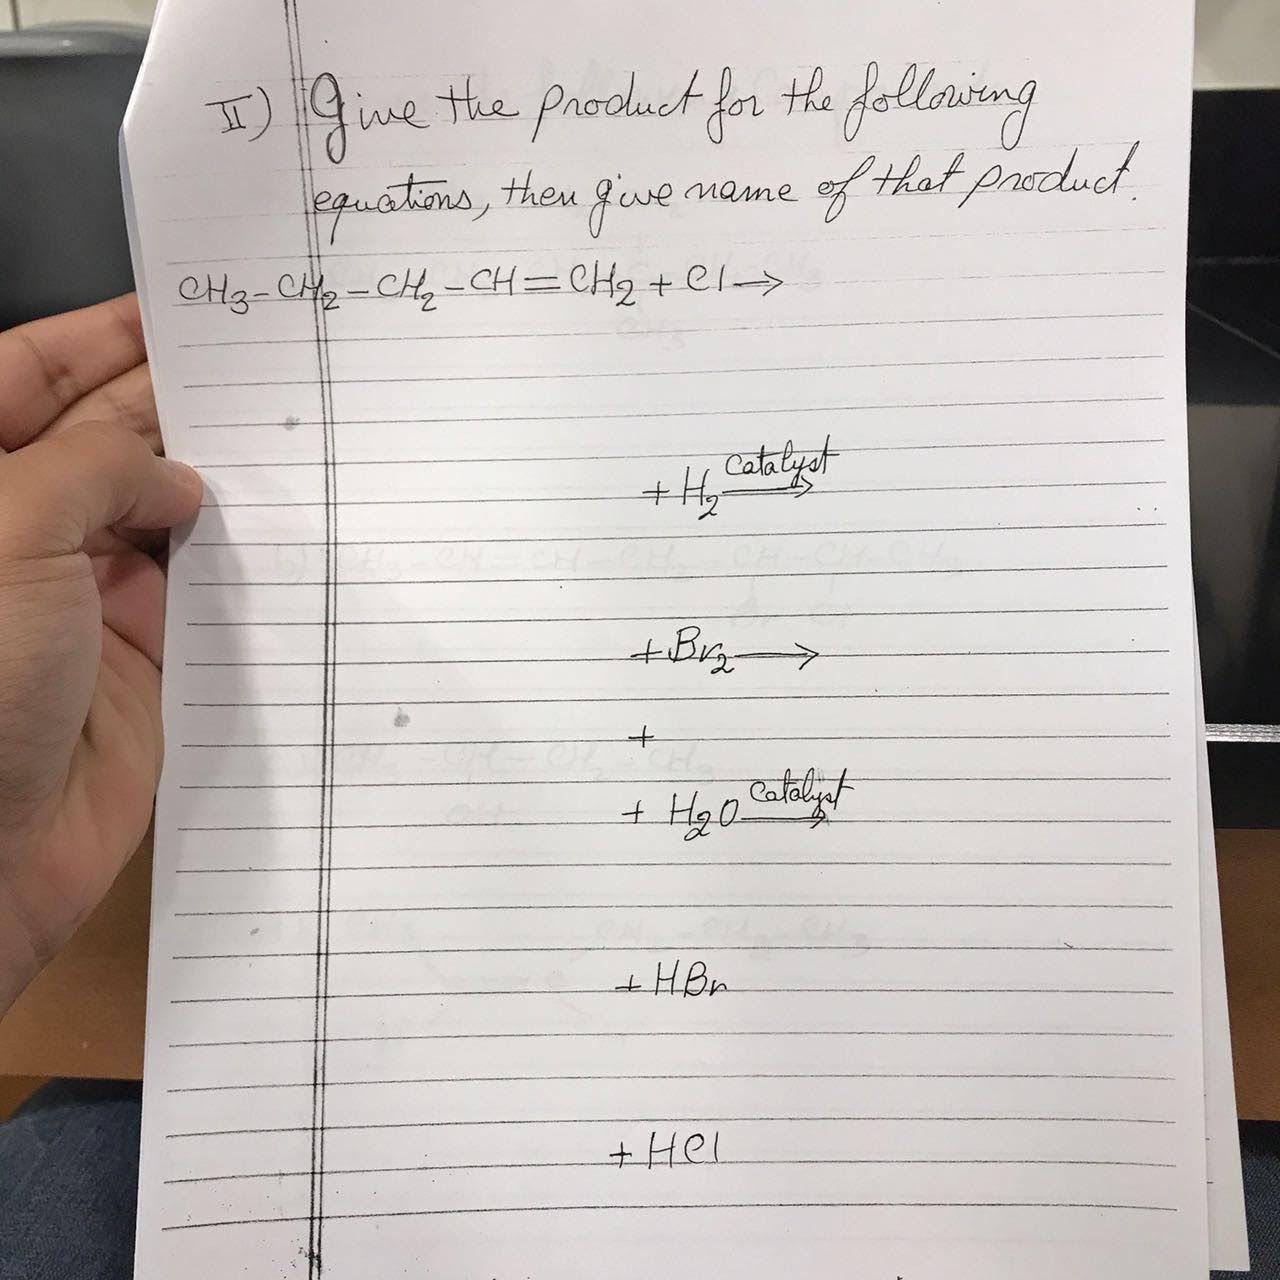 II) Give the product for the following
equations, then give name of that product.
CH3-CH2-CH2-CH=CH2 + Cl→
+ H2 catalyst→
+ Br2→
+
+ H2O catalyst→
+ HBr
+ HCl